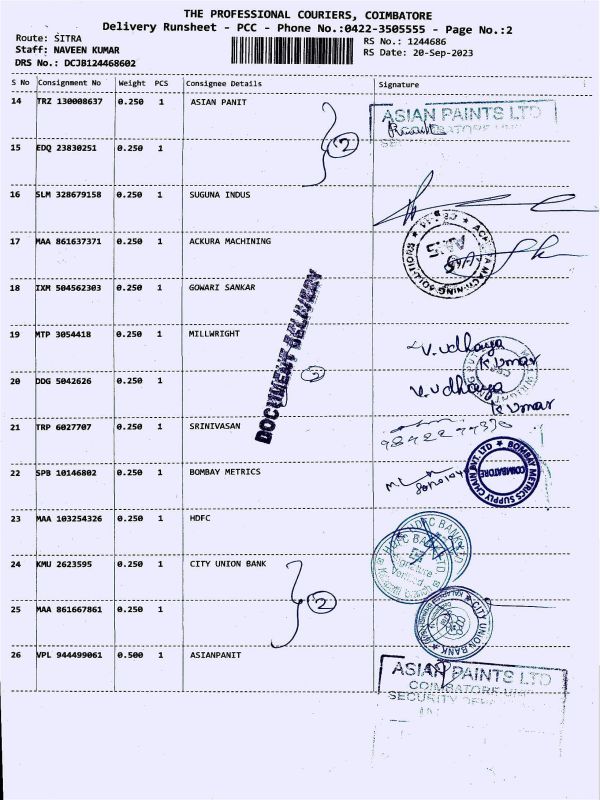 THE PROFESSIONAL COURIERS, COIMBATORE
Delivery Runsheet - PCC - Phone No.:0422-3505555 - Page No.:2
Route: SITRA
RS No.: 1244686
Staff: NAVEEN KUMAR
RS Date: 20-Sep-2023
DRS No.: DCJB124468602
S No Consignment No Weight PCS Consignee Details Signature
14 TRZ 130008637 0.250 1 ASIAN PANIT
ASIAN PAINTS LTD
15 EDQ 23830251 0.250 1
2
16 SLM 328679158 0.250 1 SUGUNA INDUS
17 MAA 861637371 0.250 1 ACKURA MACHINING
18 IXM 504562303 0.250 1 GOWARI SANKAR
DOCUMENT DELIVERY
19 MTP 3054418 0.250 1 MILLWRIGHT
V. Udhaya Kumar
20 DDG 5042626 0.250 1
2
V. Udhaya Kumar
21 TRP 6027707 0.250 1 SRINIVASAN
22 SPB 10146802 0.250 1 BOMBAY METRICS
BOMBAY METRICS SUPPLY CHAIN PVT. LTD
COIMBATORE
23 MAA 103254326 0.250 1 HDFC
HDFC BANK LTD
HDFC BANK LTD.
Signature
Verified
24 KMU 2623595 0.250 1 CITY UNION BANK
25 MAA 861667861 0.250 1
2
CITY UNION BANK
26 VPL 944499061 0.500 1 ASIANPANIT
ASIAN PAINTS LTD
COIMBATORE
SECURITY